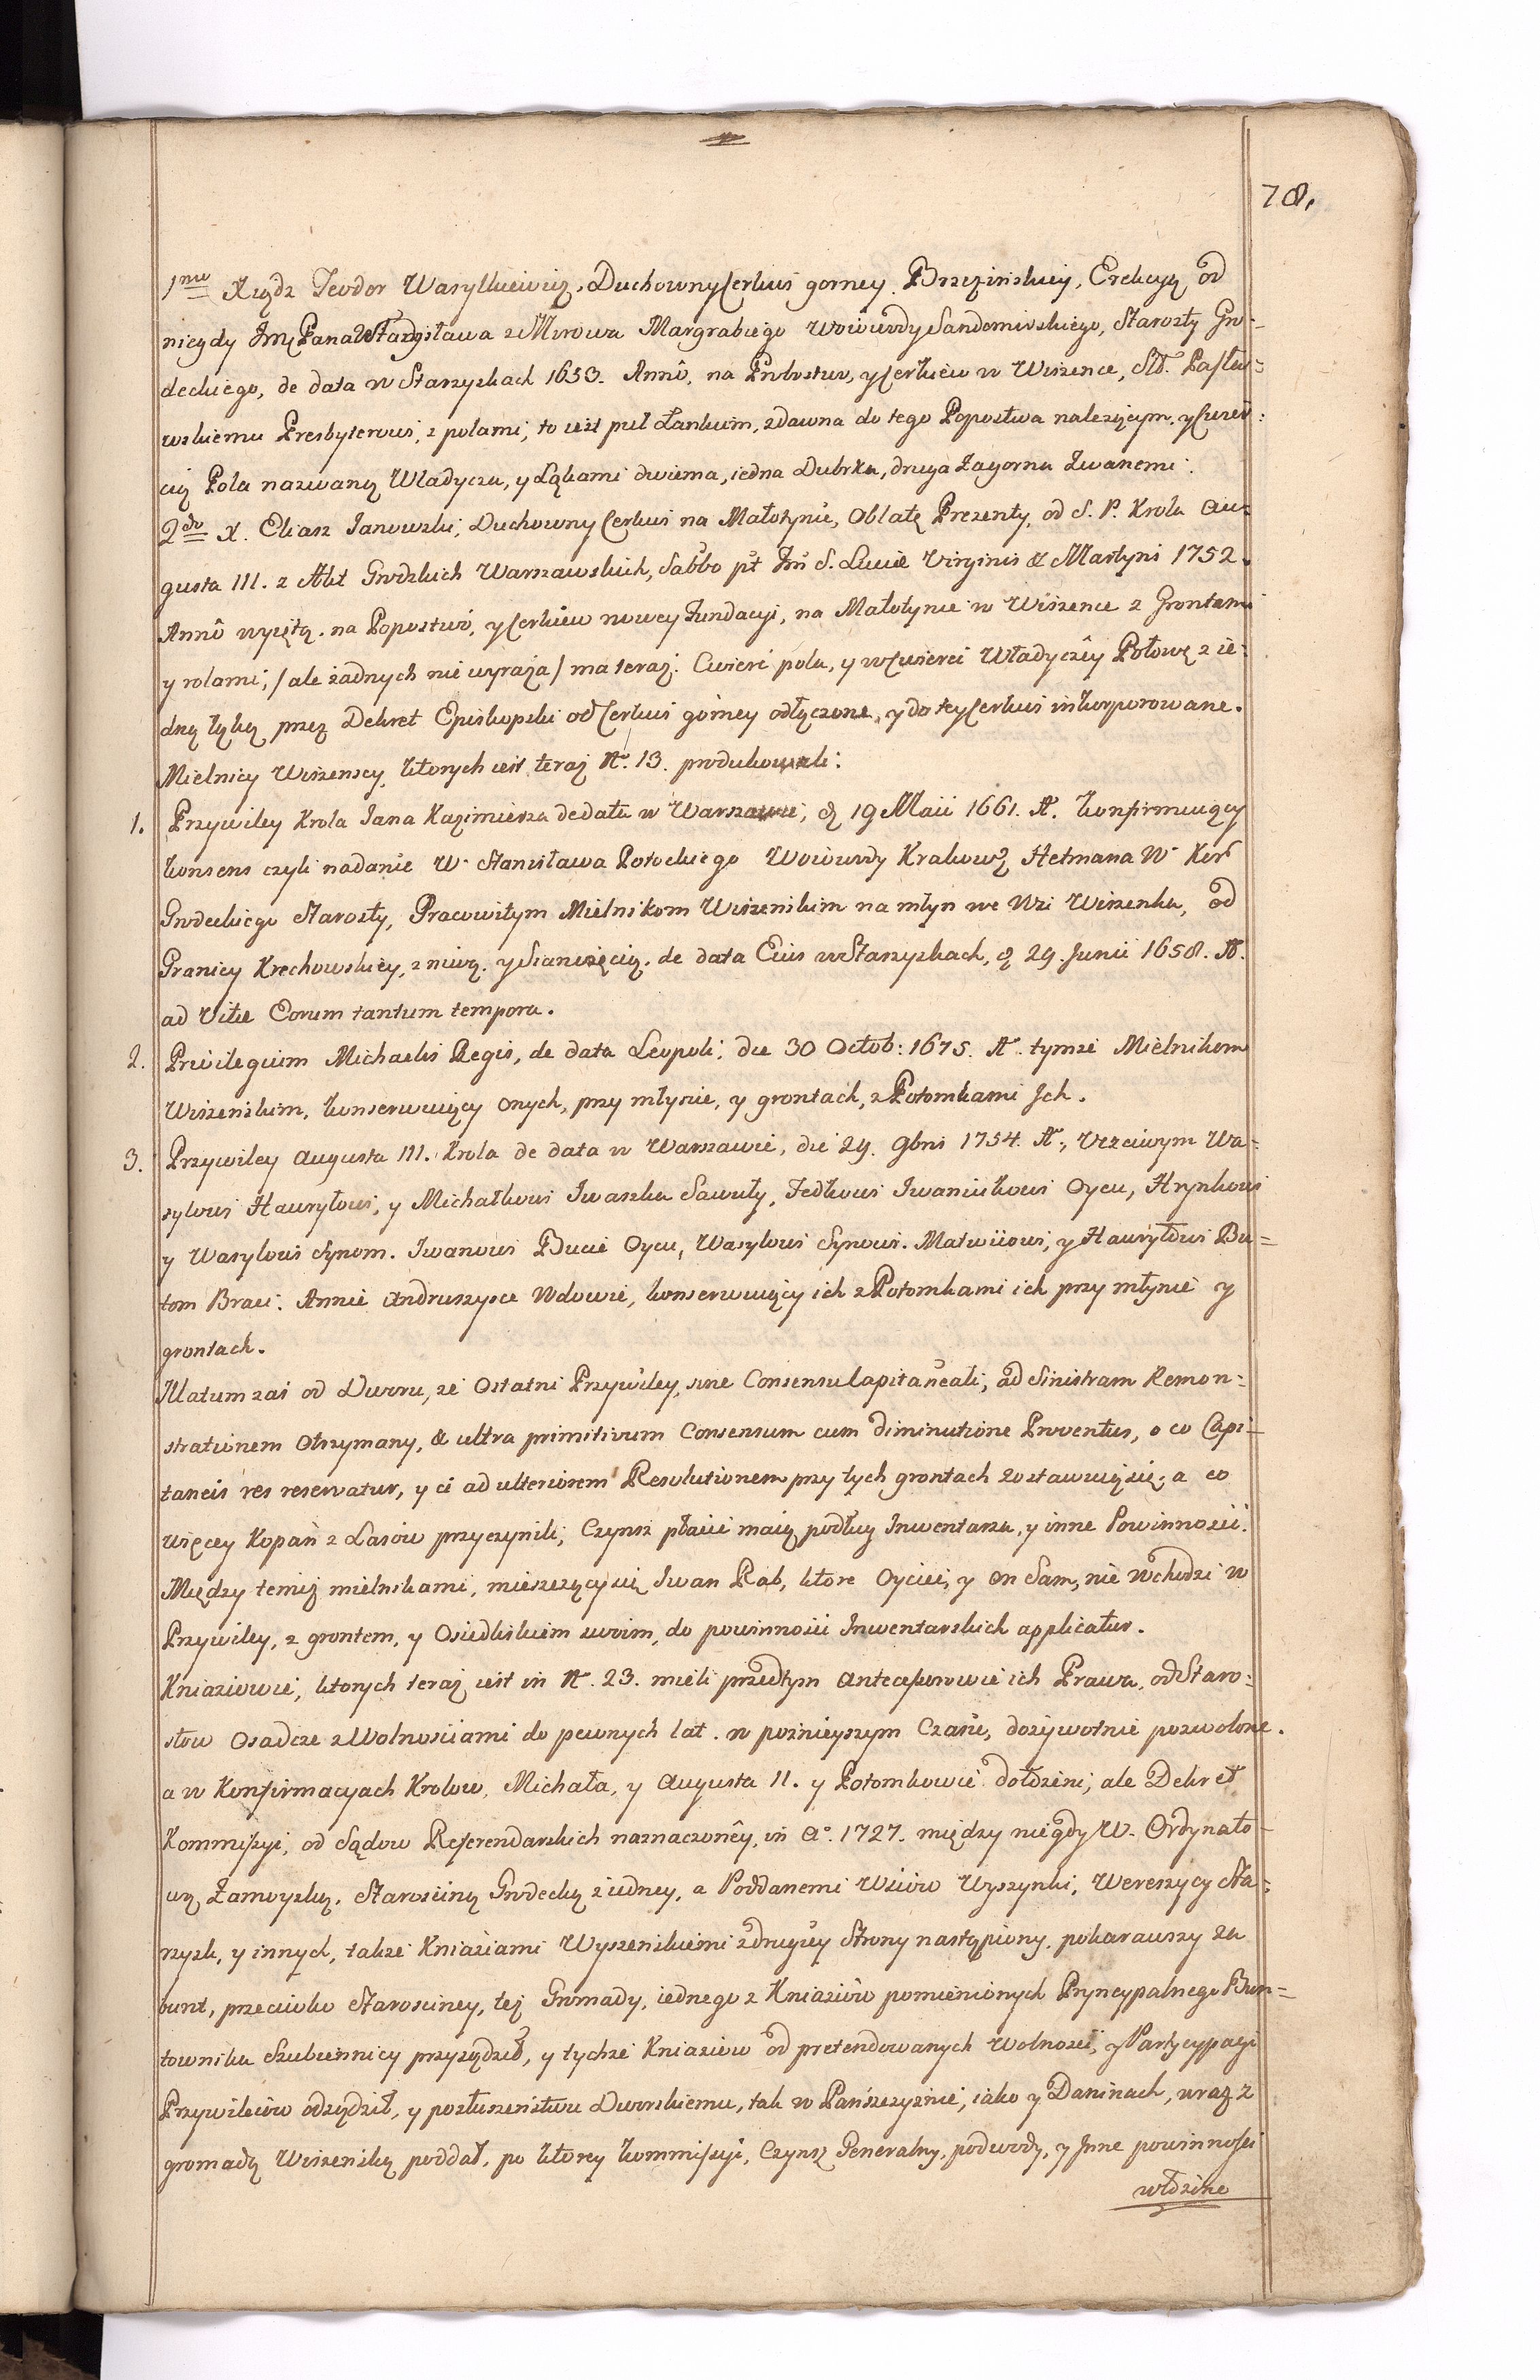 78.
1mo Xiądz Teodor Wasylkiewicz, Duchowny Cerkwi gorney Brzezińskiey, Erekcyą od
niegdy Jmć Pana Władysława z Mirowa Margrabiego Woiewody Sandomirskiego, Starosty Gro-
deckiego, de data w Starzyskach 1653. Annô, na Probostwo, y Cerkiew w Wiszence, Pasław-
wskiemu Presbyterowi, z polami, to iest puł Łankiem, zdawna do tego Popostwa należącym, y Cwier-
cią Pola nazwaną Władycza, y Łąkami dwiema, iedna Dubrka, druga Zagorna zwanemi.
2do X. Eliasz Janowski, Duchowny Cerkwi na Małotynie, Oblatę Prezenty, od S. P. Krola Au-
gusta III. z Akt Grodzkich Warszawskich, Sabbo pt S. Luciæ Virginis & Martyris 1752.
Annô wyiętą, na Popostwo, y Cerkiew nowey Fundacyi, na Małotynie w Wiszence z Grontami
y rolami, /ale żadnych nie wyraża/ ma teraz Cwierć pola, y w Cwierci Władyczêy Połowę z ie-
dną łąką przez Dekret Episkopski od Cerkwi górney odłączone, y do tey Cerkwi inkorporowane.
Mielnicy Wiszenscy, ktorych iest teraz N. 13. produkowali:
1. Przywiley Krola Jana Kazimierza de data w Warszawie, d 19 Maii 1661. A. konfirmuiący
konsens czyli nadanie W. Stanisława Potockiego Woiewody Krakow. Hetmana W. Kor
Grodeckiego Starosty, Pracowitym Mielnikom Wiszenskim na młyn we Wsi Wiszenka, od
Granicy Krechowskiey, z niwą, y Sianożęcią, de data Eius w Starzyskach, d 29. Junii 1658. A.
ad Vitæ Eorum tantum tempora.
2. Privilegium Michaelis Regis, de data Leopoli, die 30 Octob: 1675. A. tymże Mielnikom
Wiszenskim, konserwuiący onych, przy młynie, y grontach, z Potomkami Ich.
3. Przywiley Augusta III. Krola de data w Warszawie, die 29. 9bris 1754. A., Uczciwym Wa-
sylowi Hawryłowi, y Michałkowi Iwaszka Sawuły, Fedkowi Iwaniukowi Oycu, Hrynkowi
y Wasylowi Synom. Iwanowi Bucie Oycu, Wasylowi Synowi. Matwiiowi, y Hawryłowi Bu-
tom Braci. Annie Andruszysce Wdowie, konserwuiący ich z Potomkami ich przy młynie y
grontach.
Illatum zaś od Dworu, że Ostatni Przywiley, sine Consensu Capitaneali, ad Sinistram Remon-
strationem otrzymany, & ultra primitivum Consensum cum diminutione Proventus, o co Capi-
taneis res reservatur, y ci ad ulteriorem Resolutionem przy tych grontach zostawuią się, a co
więcey Kopań z Lasów przyczynili, Czynsz płacić maią podług Inwentarza, y inne Powinności.
Między temiż mielnikami, mieszczący się Iwan Rab, ktore Oyciec, y on Sam, nie wchodzi w
Przywiley, z grontem, y Osiedliskiem swoim, do powinności Inwentarskich applicatur.
Kniaziowie, ktorych teraz iest in N. 23. mieli przedtym Antecessorowie ich Prawa, od Staro-
stow Osadcze z Wolnosciami do pewnych lat, w poznieyszym Czasie, dożywotnie pozwolone.
a w Konfirmacyach Krolow, Michała, y Augusta II. y Potomkowie dołożeni, ale Dekret
Kommissyi, od Sądow Referendarskich naznaczonêy, in Ao. 1727. między niegdy W. Ordynato-
wą Zamoyską, Starosciną Grodecką z iedney, a Poddanemi Wsiow Wyszynki, Wereszycy Sta-
rzysk, y innych, także Kniaziami Wyszenskiemi z drugiey Strony nastąpiony, pokarawszy za
bunt, przeciwko Starosciney, tey Gromady, iednego z Kniaziôw pomienionych Pryncypalnego Bun-
townika Szubiennicy przysądził, y tychże Kniaziow od pretendowanych Wolnosci, y Partycypacyi
Przywileiôw odsądził, y posłuszeństwu Dworskiemu, tak w Pańszczyznie, iako y Daninach, wraz z
gromadą Wiszenską poddał, po ktorey kommissyi, Czynsz Generalny, podwody, y Inne powinnosci
włożone